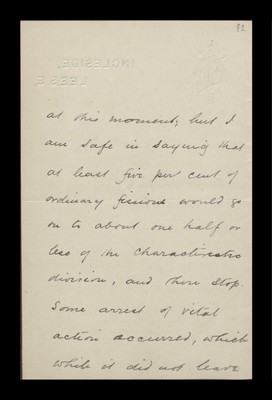 82
INGLESIDE,
LEES E
at this moment; but I
am safe in saying that
at least five per cent of
ordinary fissions would go
on to about one half or
less of the characteristic
division, and then stop.
Some arrest of vital
action occurred, which
while it did not leave